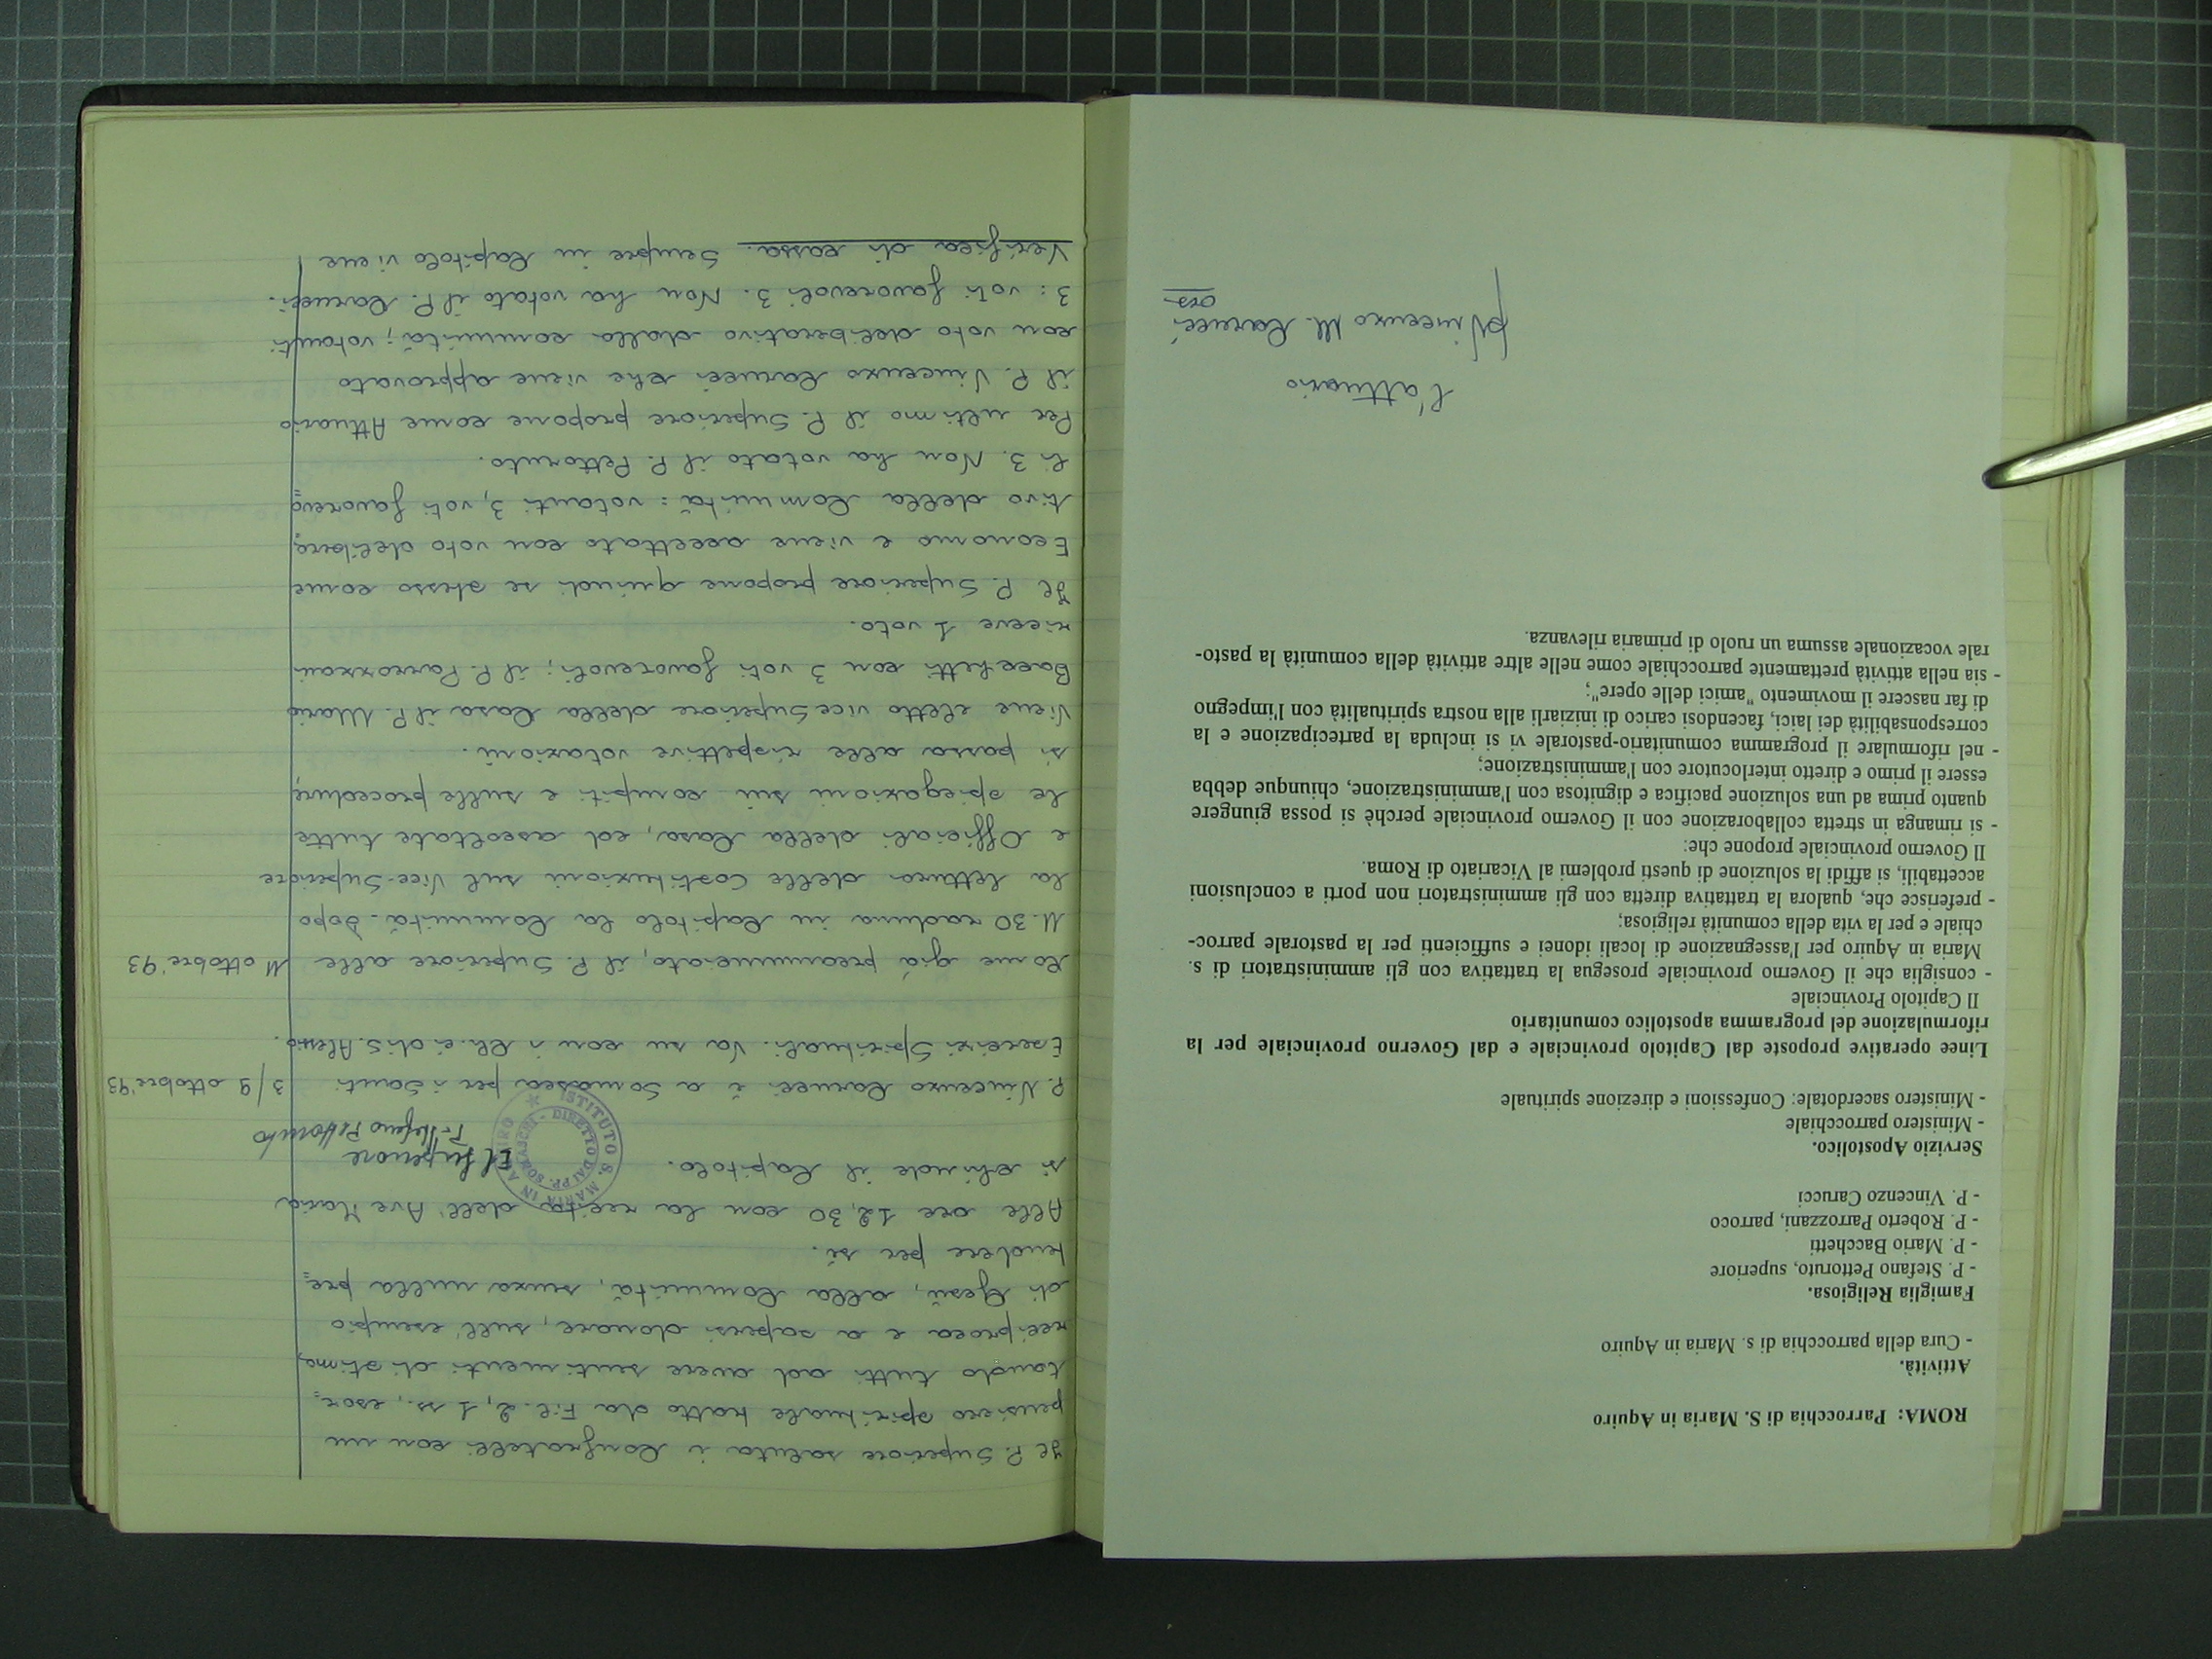 ROMA: Parrocchia di S. Maria in Aquiro
Attività.
- Cura della parrocchia di s. Maria in Aquiro
Famiglia Religiosa.
- P. Stefano Pettoruto, superiore
- P. Mario Bacchetti
- P. Roberto Parrozzani, parroco
- P. Vincenzo Carucci
Servizio Apostolico.
- Ministero parrocchiale
- Ministero sacerdotale: Confessioni e direzione spirituale
Linee operative proposte dal Capitolo provinciale e dal Governo provinciale per la
riformulazione del programma apostolico comunitario
Il Capitolo Provinciale
- consiglia che il Governo provinciale prosegua la trattativa con gli amministratori di s.
Maria in Aquiro per l'assegnazione di locali idonei e sufficienti per la pastorale parroc-
chiale e per la vita della comunità religiosa;
- preferisce che, qualora la trattativa diretta con gli amministratori non porti a conclusioni
accettabili, si affidi la soluzione di questi problemi al Vicariato di Roma.
Il Governo provinciale propone che:
- si rimanga in stretta collaborazione con il Governo provinciale perchè si possa giungere
quanto prima ad una soluzione pacifica e dignitosa con l'amministrazione, chiunque debba
essere il primo e diretto interlocutore con l'amministrazione;
- nel riformulare il programma comunitario-pastorale vi si includa la partecipazione e la
corresponsabilità dei laici, facendosi carico di iniziarli alla nostra spiritualità con l'impegno
di far nascere il movimento "amici delle opere";
- sia nella attività prettamente parrocchiale come nelle altre attività della comunità la pasto-
rale vocazionale assuma un ruolo di primaria rilevanza.
l'attuario
p. Vincenzo M. Carucci
crs
Il P. Superiore saluta i Confratelli con un
pensiero spirituale tratto da Fil. 2, 1 ss., esor=
tando tutti ad avere sentimenti di stima
reciproca e a sapersi donare, sull'esempio
di Gesù, alla Comunità, senza nulla pre=
tendere per sé.
Alle ore 12,30 con la recita dell'Ave Maria
si chiude il Capitolo. Il Superiore
P. Stefano Pettoruto
ISTITUTO S. MARIA IN AQUIRO
DIRETTO DAI PP. SOMASCHI
P. Vincenzo Carucci è a Somasca per i Santi 3/9 ottobre '93
Esercizi Spirituali. Va su con i Ch.ci di S. Alessio.
Come già preannunciato, il P. Superiore alle 11 ottobre '93
11.30 raduna in Capitolo la Comunità. Dopo
la lettura delle Costituzioni sul Vice-Superiore
e Officiali della Casa, ed ascoltate tutte
le spiegazioni sui compiti e sulle procedure,
si passa alle rispettive votazioni.
Viene eletto vice Superiore della Casa il P. Mario
Bacchetti con 3 voti favorevoli; il P. Parrozzani
riceve 1 voto.
Il P. Superiore propone quindi se stesso come
Economo e viene accettato con voto delibera=
tivo della Comunità: votanti 3, voti favorevo=
li 3. Non ha votato il P. Pettoruto.
Per ultimo il P. Superiore propone come Attuario
il P. Vincenzo Carucci che viene approvato
con voto deliberativo dalla comunità; votanti
3: voti favorevoli 3. Non ha votato il P. Carucci.
Verifica di cassa. Sempre in Capitolo viene